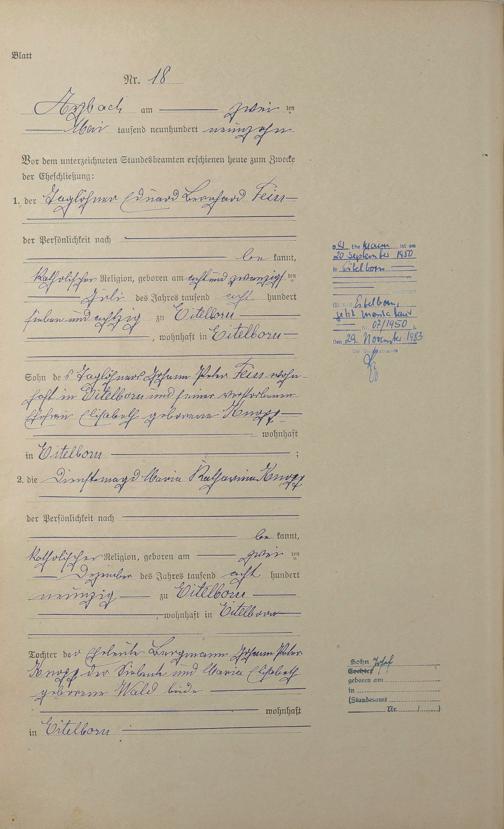 Blatt
Nr. 18
Arzbach am zwei ten
Mai tausend neunhundert neunzehn
Vor dem unterzeichneten Standesbeamten erschienen heute zum Zwecke
der Eheschließung:
1. der Taglöhner Eduard Bernhard Feiss
der Persönlichkeit nach
be kannt,
katholischer Religion, geboren am acht und zwanzigs ten
Juli des Jahres tausend acht hundert
sieben und achtzig zu Eitelborn
, wohnhaft in Eitelborn
Sohn des Taglöhners Johann Peter Feiss wohn-
haft in Eitelborn und seiner verstorbenen
Ehefrau Elisabeth geborene Knopp
wohnhaft
in Eitelborn ;
2. die Dienstmagd Maria Katharina Knopp
der Persönlichkeit nach
be kannt,
katholischer Religion, geboren am zwei ten
Dezember des Jahres tausend acht hundert
neunzig zu Eitelborn
, wohnhaft in Eitelborn
Tochter der Eheleute Bergmann Johann Peter
Knopp der Siebente und Maria Elisabeth
geborene Wald beide
wohnhaft
in Eitelborn
Mann ist am
20 September 1950
in Eitelborn
Eitelborn,
jetzt Montabaur
07/1950
Den 29. November 1983
Sohn Josef
Tochter
geboren am
in
(Standesamt
Nr. / )